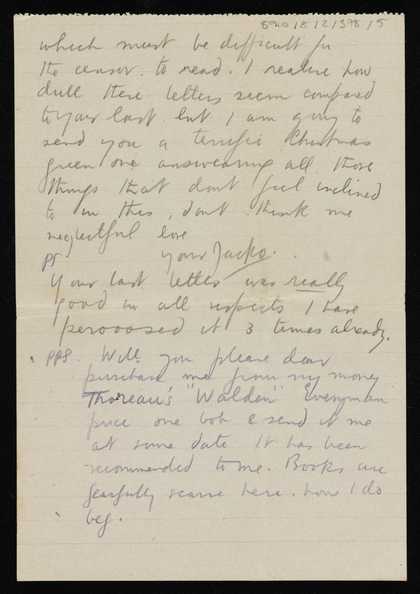 8201/2/1/398/5
which must be difficult for
the censor. to read. I realise how
dull these letters seem compared
to your last. but I am going to
send you a terrific Christmas
green one answearing all those
things that dont feel inclined
to in this, dont think me
neglectful love
your Jacko.
PS
Your last letter was really
good in all respects I have
peroooosed it 3 times already.
PPS. Will you please dear
purchase me from my money
Thoreau's "Walden" Everyman
price one bob & send it me
at some date It has been
recommended to me. Books are
fearfully scarce here. how I do
beg.